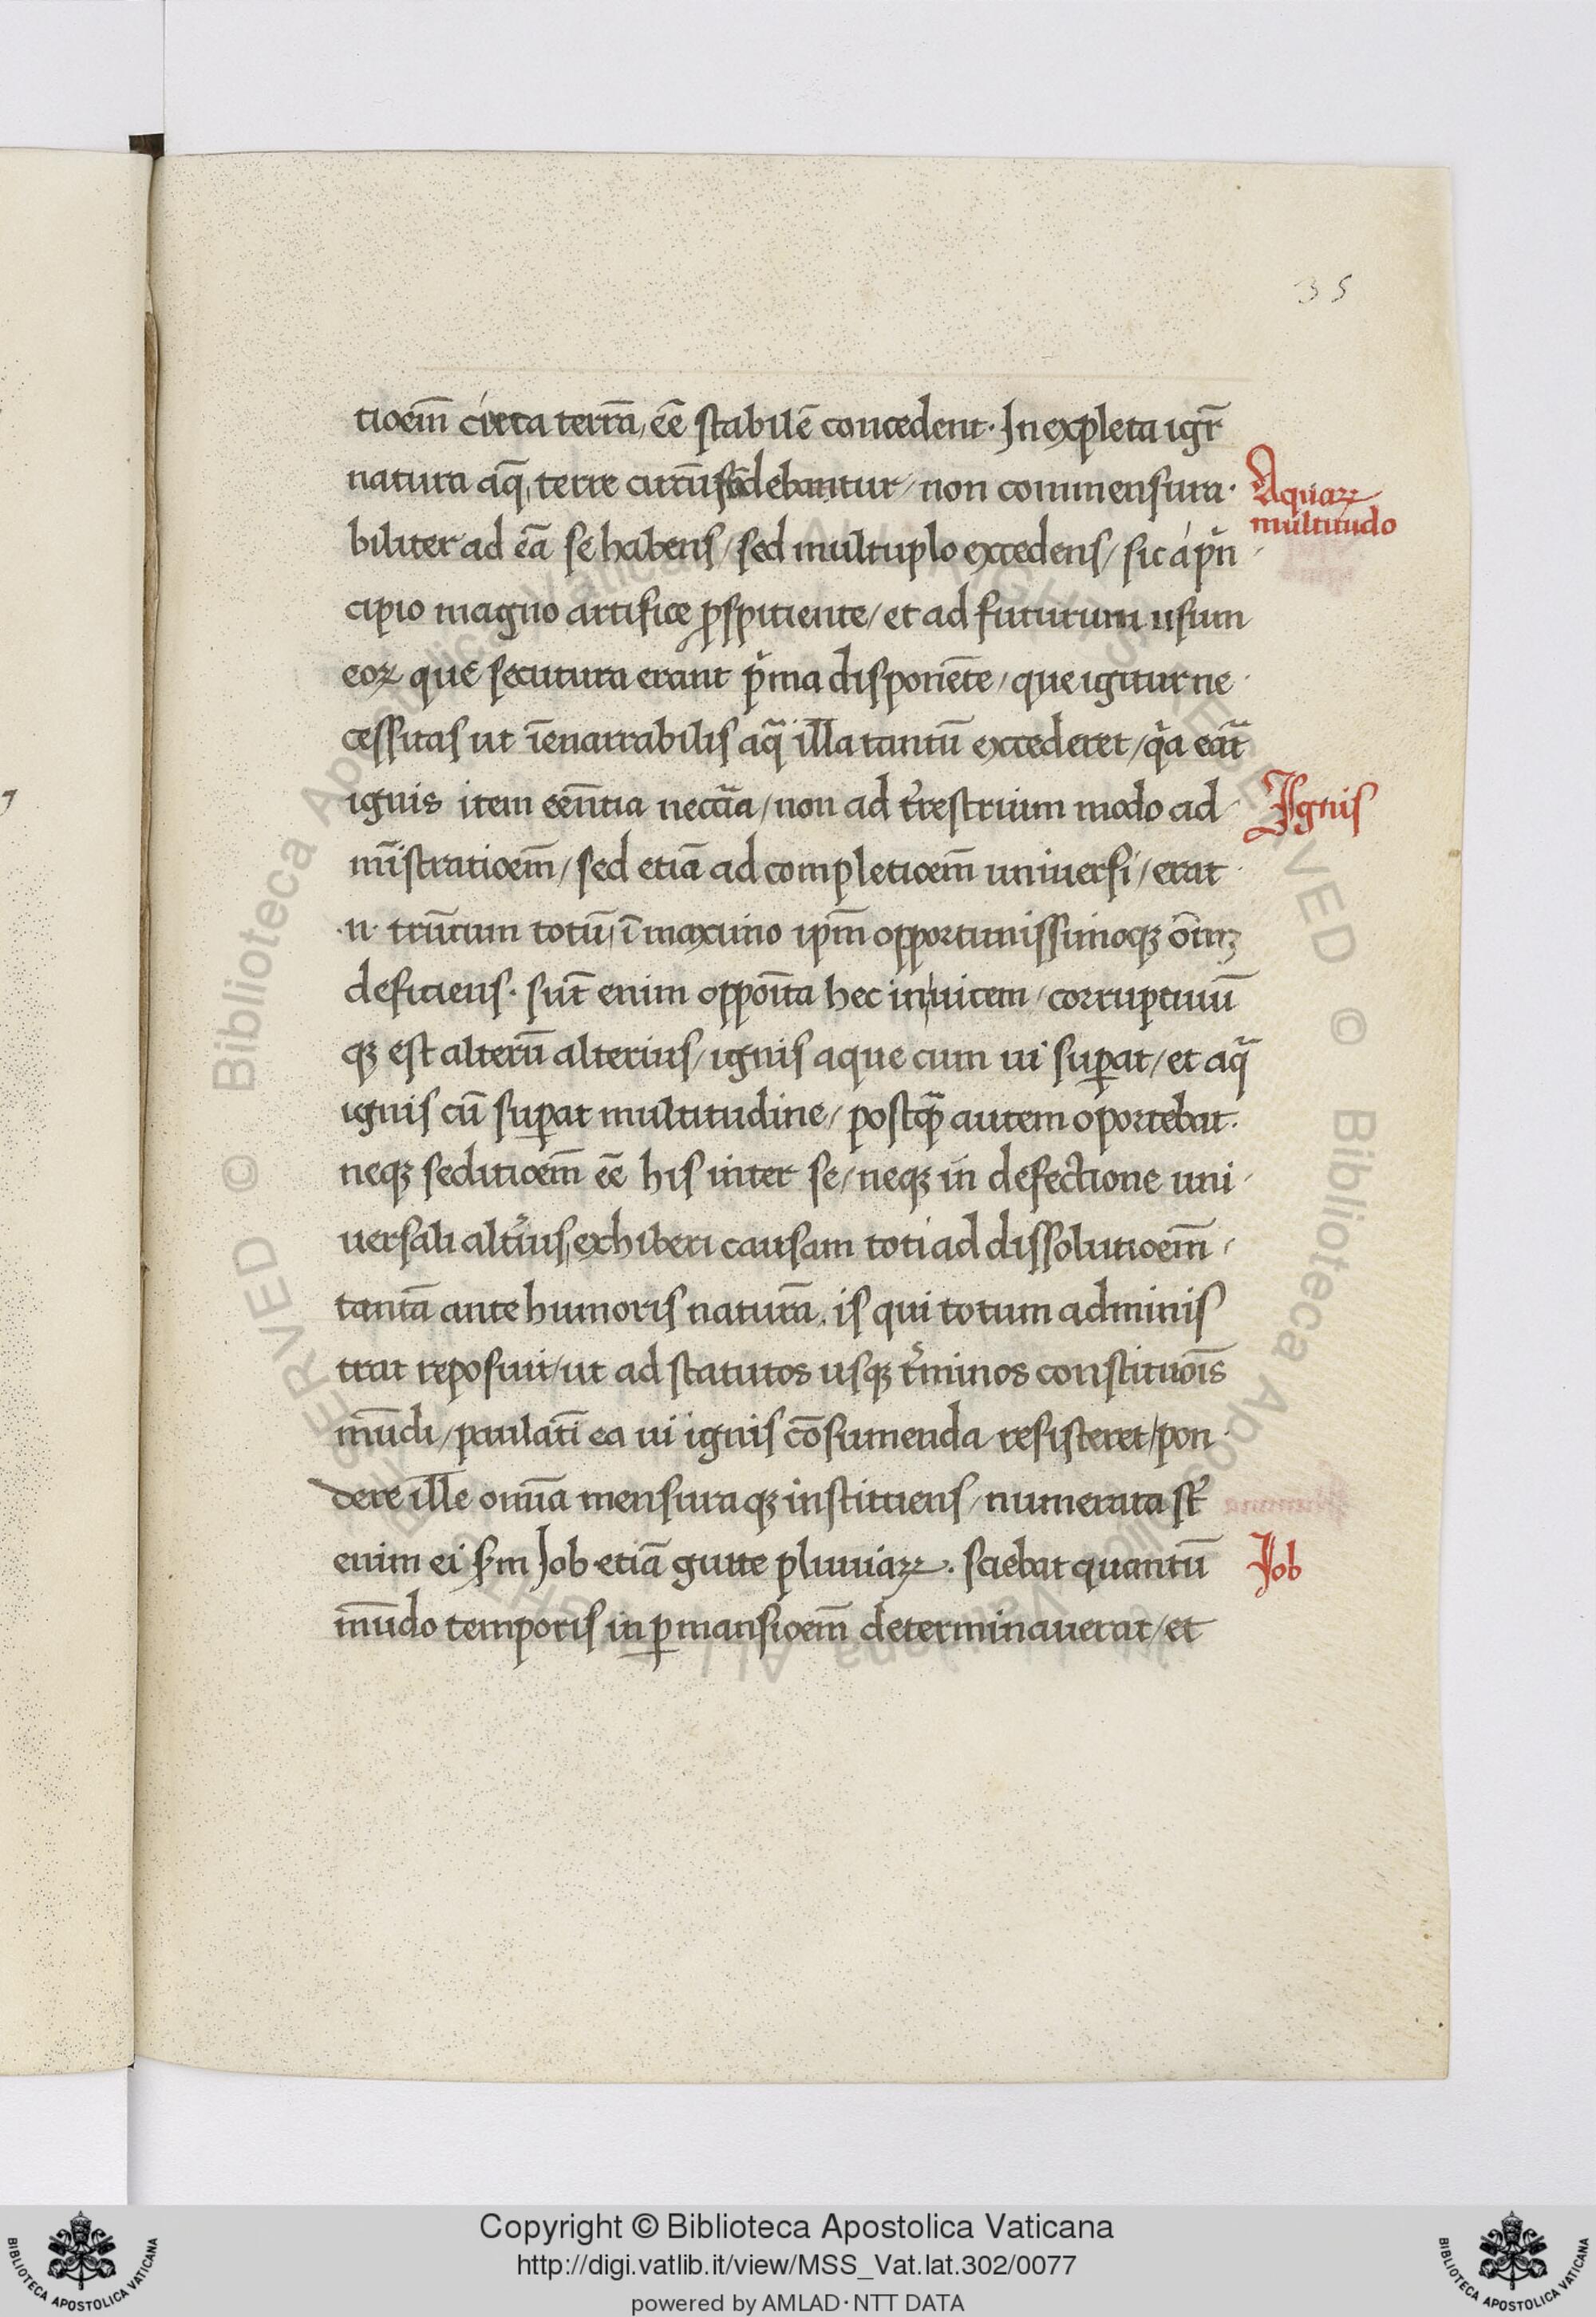 35
tioem̄ circa terrā, eē stabilē concedent. Inexpleta igr̄
natura aq̄, terre circūfūdebantur / non commensura·
biliter ad eā se habens / sed multuplo excedens / sic á pn̄
cipio magno artifice ꝓspitiente / et ad futurum usum
eoꝝ que secutura erant pͥma disponēte / que igitur ne
cessitas ut īenarrabilis aqᷓ illa tantū excederet / qͥa eāt
Aquaꝝ
multitudo
ignis item eēntia neccͣia / non ad tr̄estrium modo ad
Ignis
mīstratioem̄ / sed etiā ad completioem̄ uniuersi / erat
·n· trūcum totū, ī maximo ip̄m opportunissimoqꝫ ōīnꝫ
deficiens. sūt enim oppoīta hec inuicem / corruptiuū
qꝫ est alterū alterius / ignis aque cum ui suꝑat / et aqᷓ
ignis cū suꝑat multitudine / postqᷓ autem oportebat.
neqꝫ seditioem̄ eē his inter se / neqꝫ in defectione uni
uersali altͥius, exhiberi causam toti ad dissolutioem̄ /
tantā ante humoris naturā, is qui totum adminis
trat reposuit / ut ad statutos usqꝫ tͬminos constituoīs
mūdi / paulatī ea ui ignis cōsumenda resisteret / pon
dere ille omīa mensuraqꝫ instituens / numerata st̄
enim ei sm̄ Job etiā gutte pluuiaꝝ. sciebat quantū
Job
mūdo temporis in ꝑmansioem̄ determinauerat / et
Copyright © Biblioteca Apostolica Vaticana
http://digi.vatlib.it/view/MSS_Vat.lat.302/0077
powered by AMLAD·NTT DATA
BIBLIOTECA APOSTOLICA VATICANA
BIBLIOTECA APOSTOLICA VATICANA